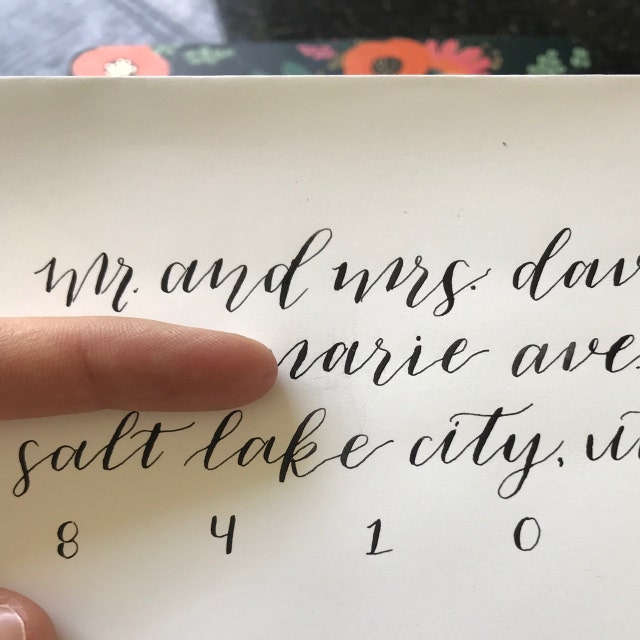 mr. and mrs. dav
marie ave.
salt lake city, ut
8 4 1 0